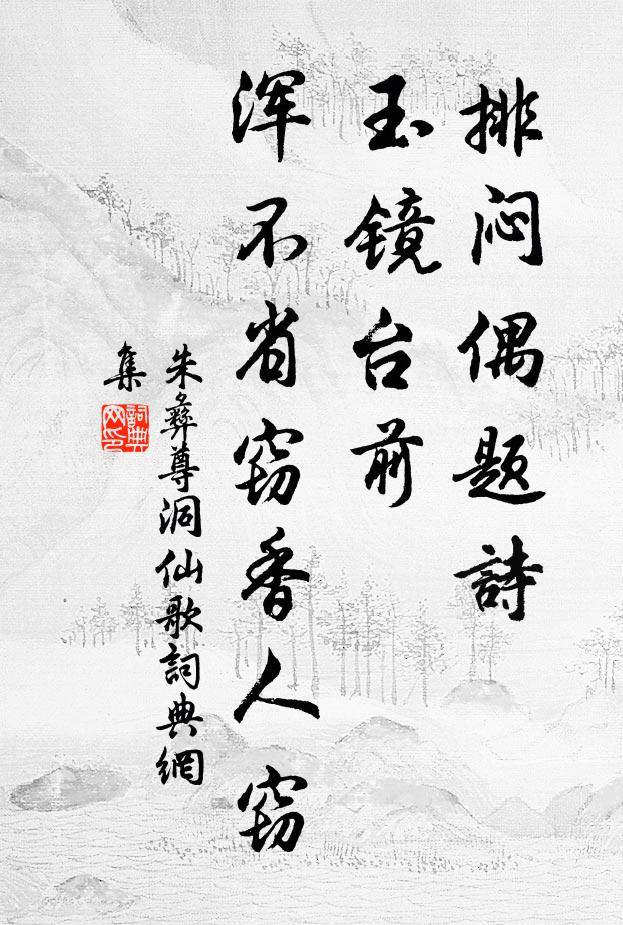 排闷偶题詩
玉镜台前
浑不省窃香人窃
朱彝尊洞仙歌詞典網
集
詞典
网印